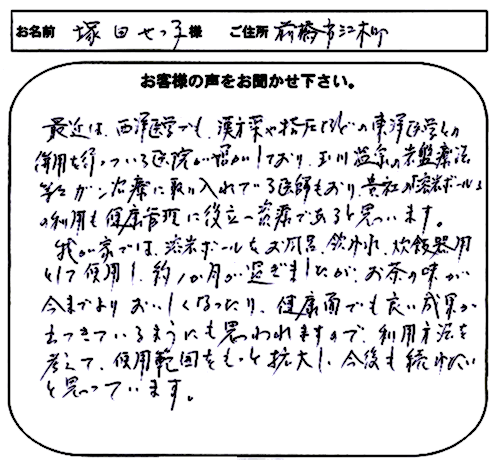 お名前 塚田せつ子様 ご住所 前橋市江木町
お客様の声をお聞かせ下さい。
最近は、西洋医学でも、漢方薬や指圧などの東洋医学との
併用を行っている医院が増加しており、玉川温泉の岩盤療法
等をガン治療に取り入れている医師もおり、貴社の溶岩ボール
の利用も健康管理に役立つ資源であると思います。
我が家では、溶岩ボールをお風呂、飲水、炊飯器用
として使用し、約1か月が過ぎましたが、お茶の味が
今までよりおいしくなったり、健康面でも良い成果が
出てきているようにも思われますので、利用方法を
考えて、使用範囲をもっと拡大し、今後も続けたい
と思っています。